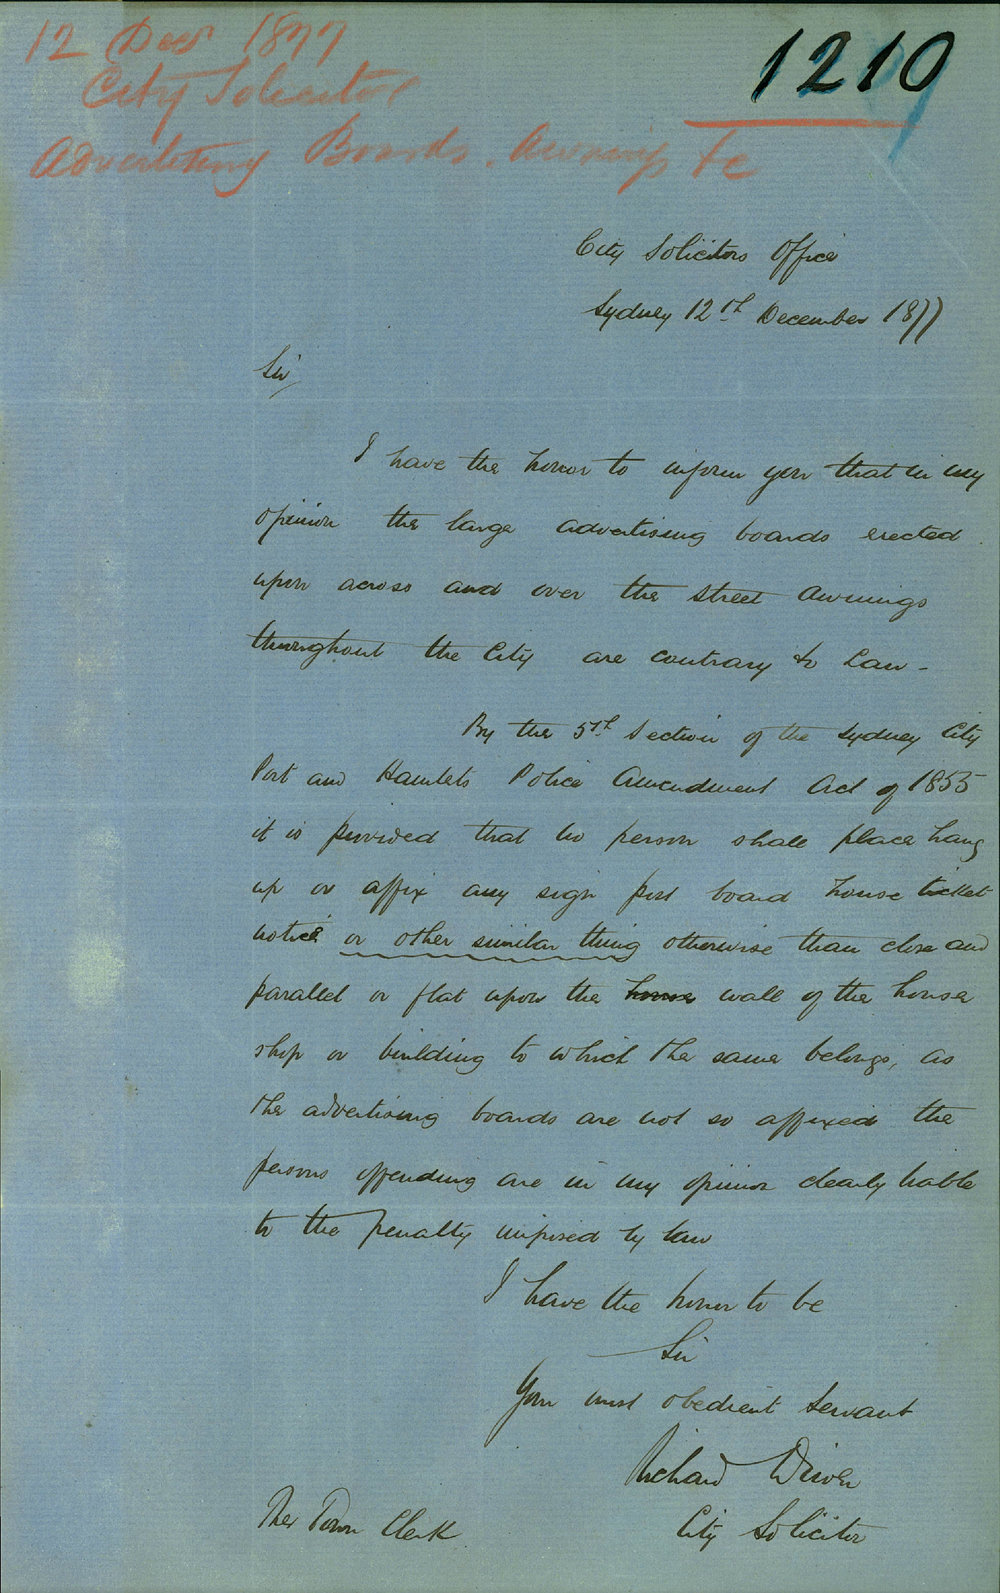 12 Decr 1877
1210
City Solicitor
Advertising Boards. Awnings &c
City Solicitors Office
Sydney 12th December 1877
Sir
I have the honor to inform you that in my
opinion the large advertising boards erected
upon across and over the street awnings
throughout the City are contrary to Law -
By the 5th Section of the Sydney City
Port and Hamlets Police Amendment Act of 1855
it is provided that no person shall place hang
up or affix any sign post board house ticket
notice or other similar thing otherwise than close and
parallel or flat upon the house wall of the house
shop or building to which the same belongs, as
the advertising boards are not so affixed the
persons offending are in my opinion clearly liable
to the penalty imposed by law
I have the honor to be
Sir
Your most obedient servant
Richard Driver
City Solicitor
The Town Clerk